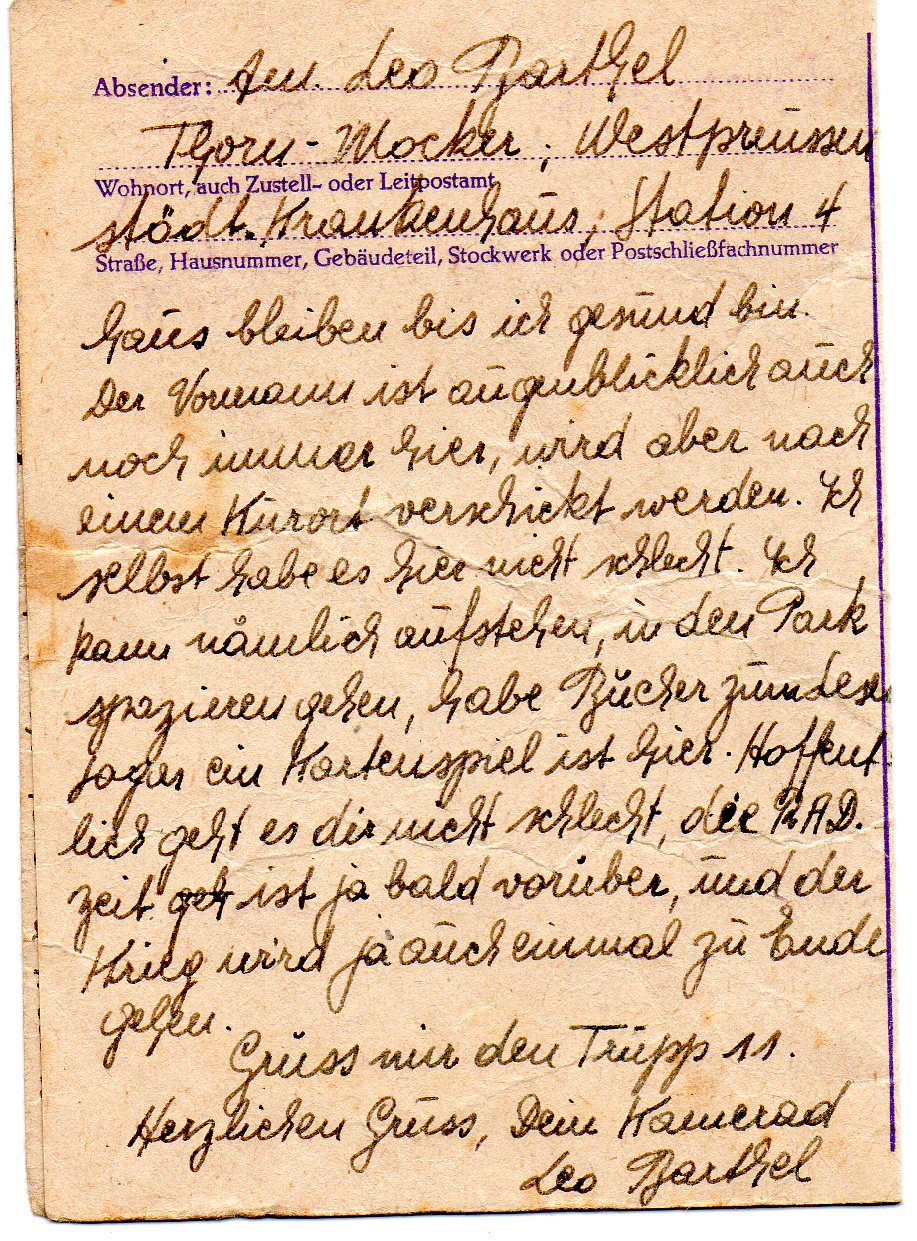 Absender: Am. Leo Barthel
Thorn-Mocker, Westpreussen
Wohnort, auch Zustell- oder Leitpostamt
städt. Krankenhaus, Station 4
Straße, Hausnummer, Gebäudeteil, Stockwerk oder Postschließfachnummer
haus bleiben bis ich gesund bin.
Der Vormann ist augenblicklich auch
noch immer hier, wird aber nach
einem Kurort verschickt werden. Ich
selbst habe es hier nicht schlecht. Ich
kann nämlich aufstehen, in den Park
spazieren gehen, habe Bücher zum lesen
sogar ein Kartenspiel ist hier. Hoffent
lich geht es dir nicht schlecht, die RAD.
zeit geh ist ja bald vorüber, und der
Krieg wird ja auch einmal zu Ende
gehen.
Grüss mir den Trupp 11.
Herzlichen Gruss, Dein Kamerad
Leo Barthel